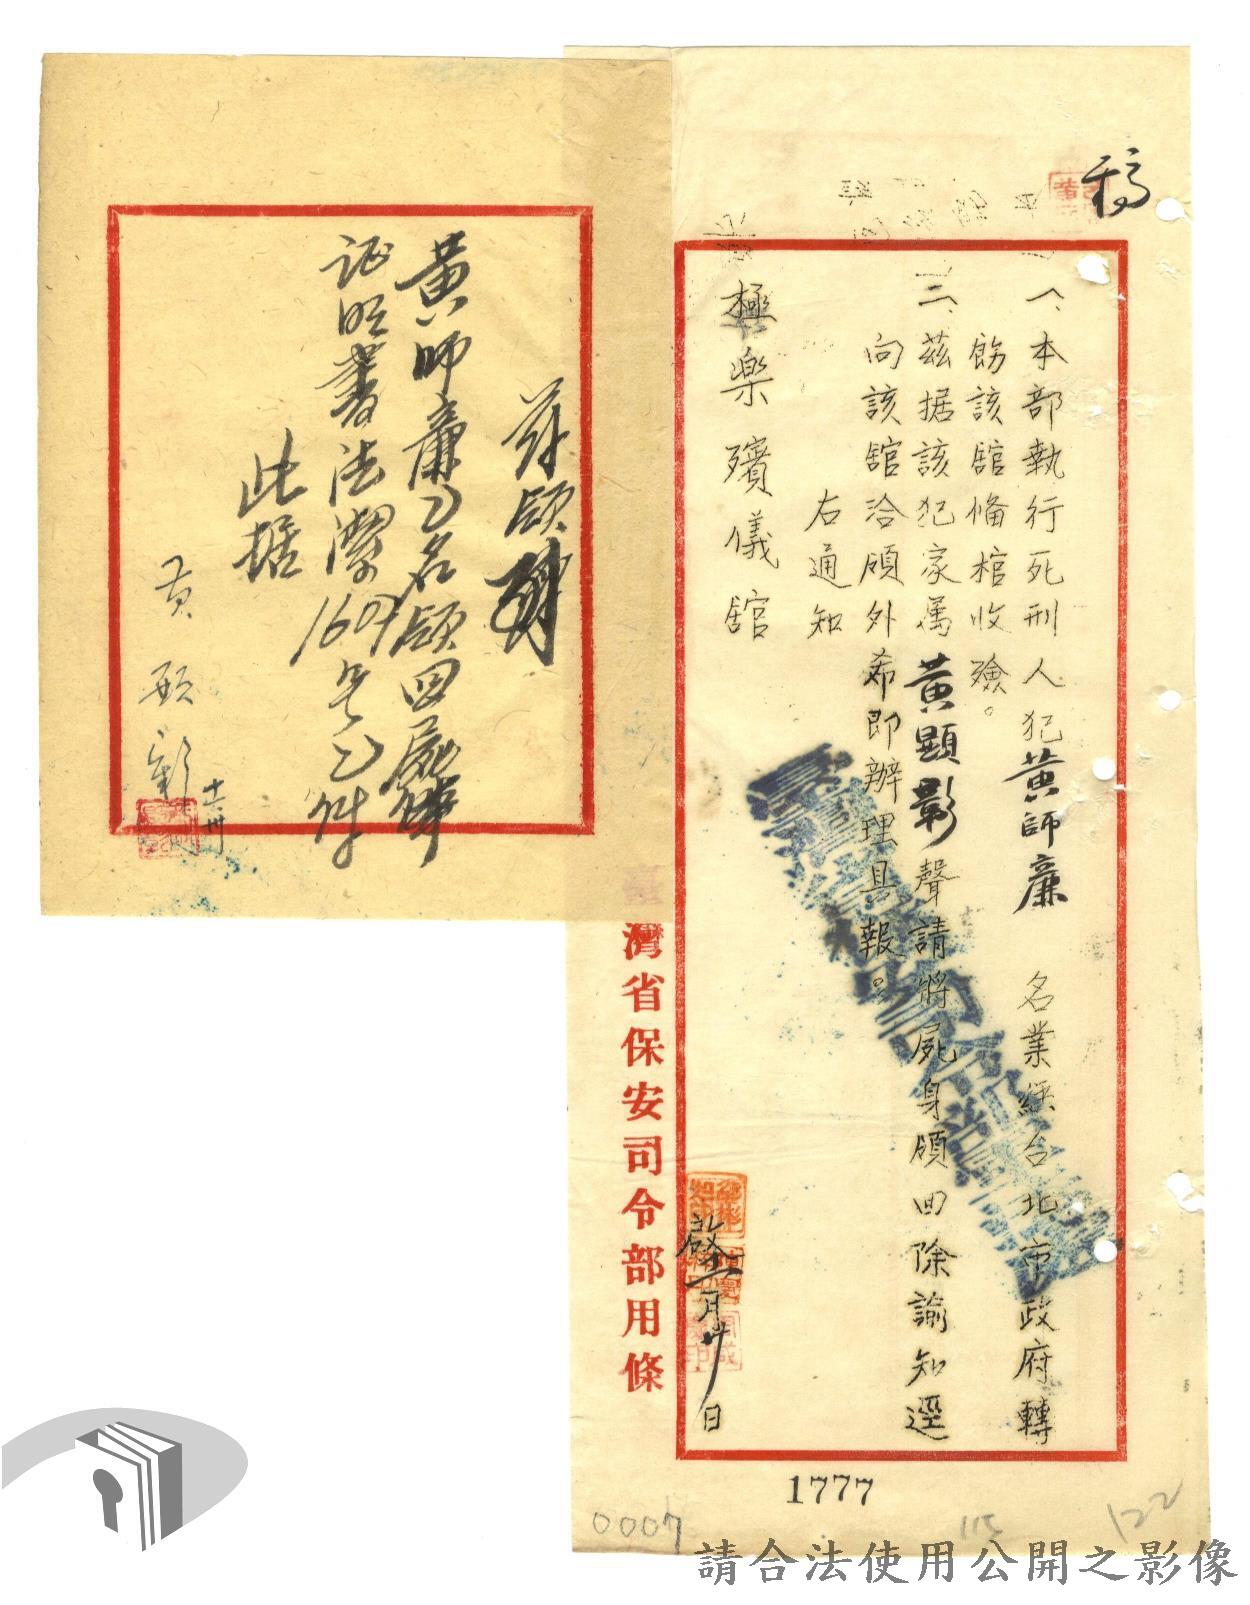 稿
一、本部執行死刑人犯黃師廉 名業經台北市政府轉
飭該舘俻棺收殮。
二、茲据該犯家属黃顯彰聲請將屍身領回除諭知逕
向該舘洽領外希即辦理具報。
右通知
極楽殯儀舘
月卅日
臺灣省保安司令部用條
1777
茲領
黃師廉乙名領回屍体
证明書法潔1609号乙件
此據
黃顯彰
十一卅
0007
115
122
請合法使用公開之影像